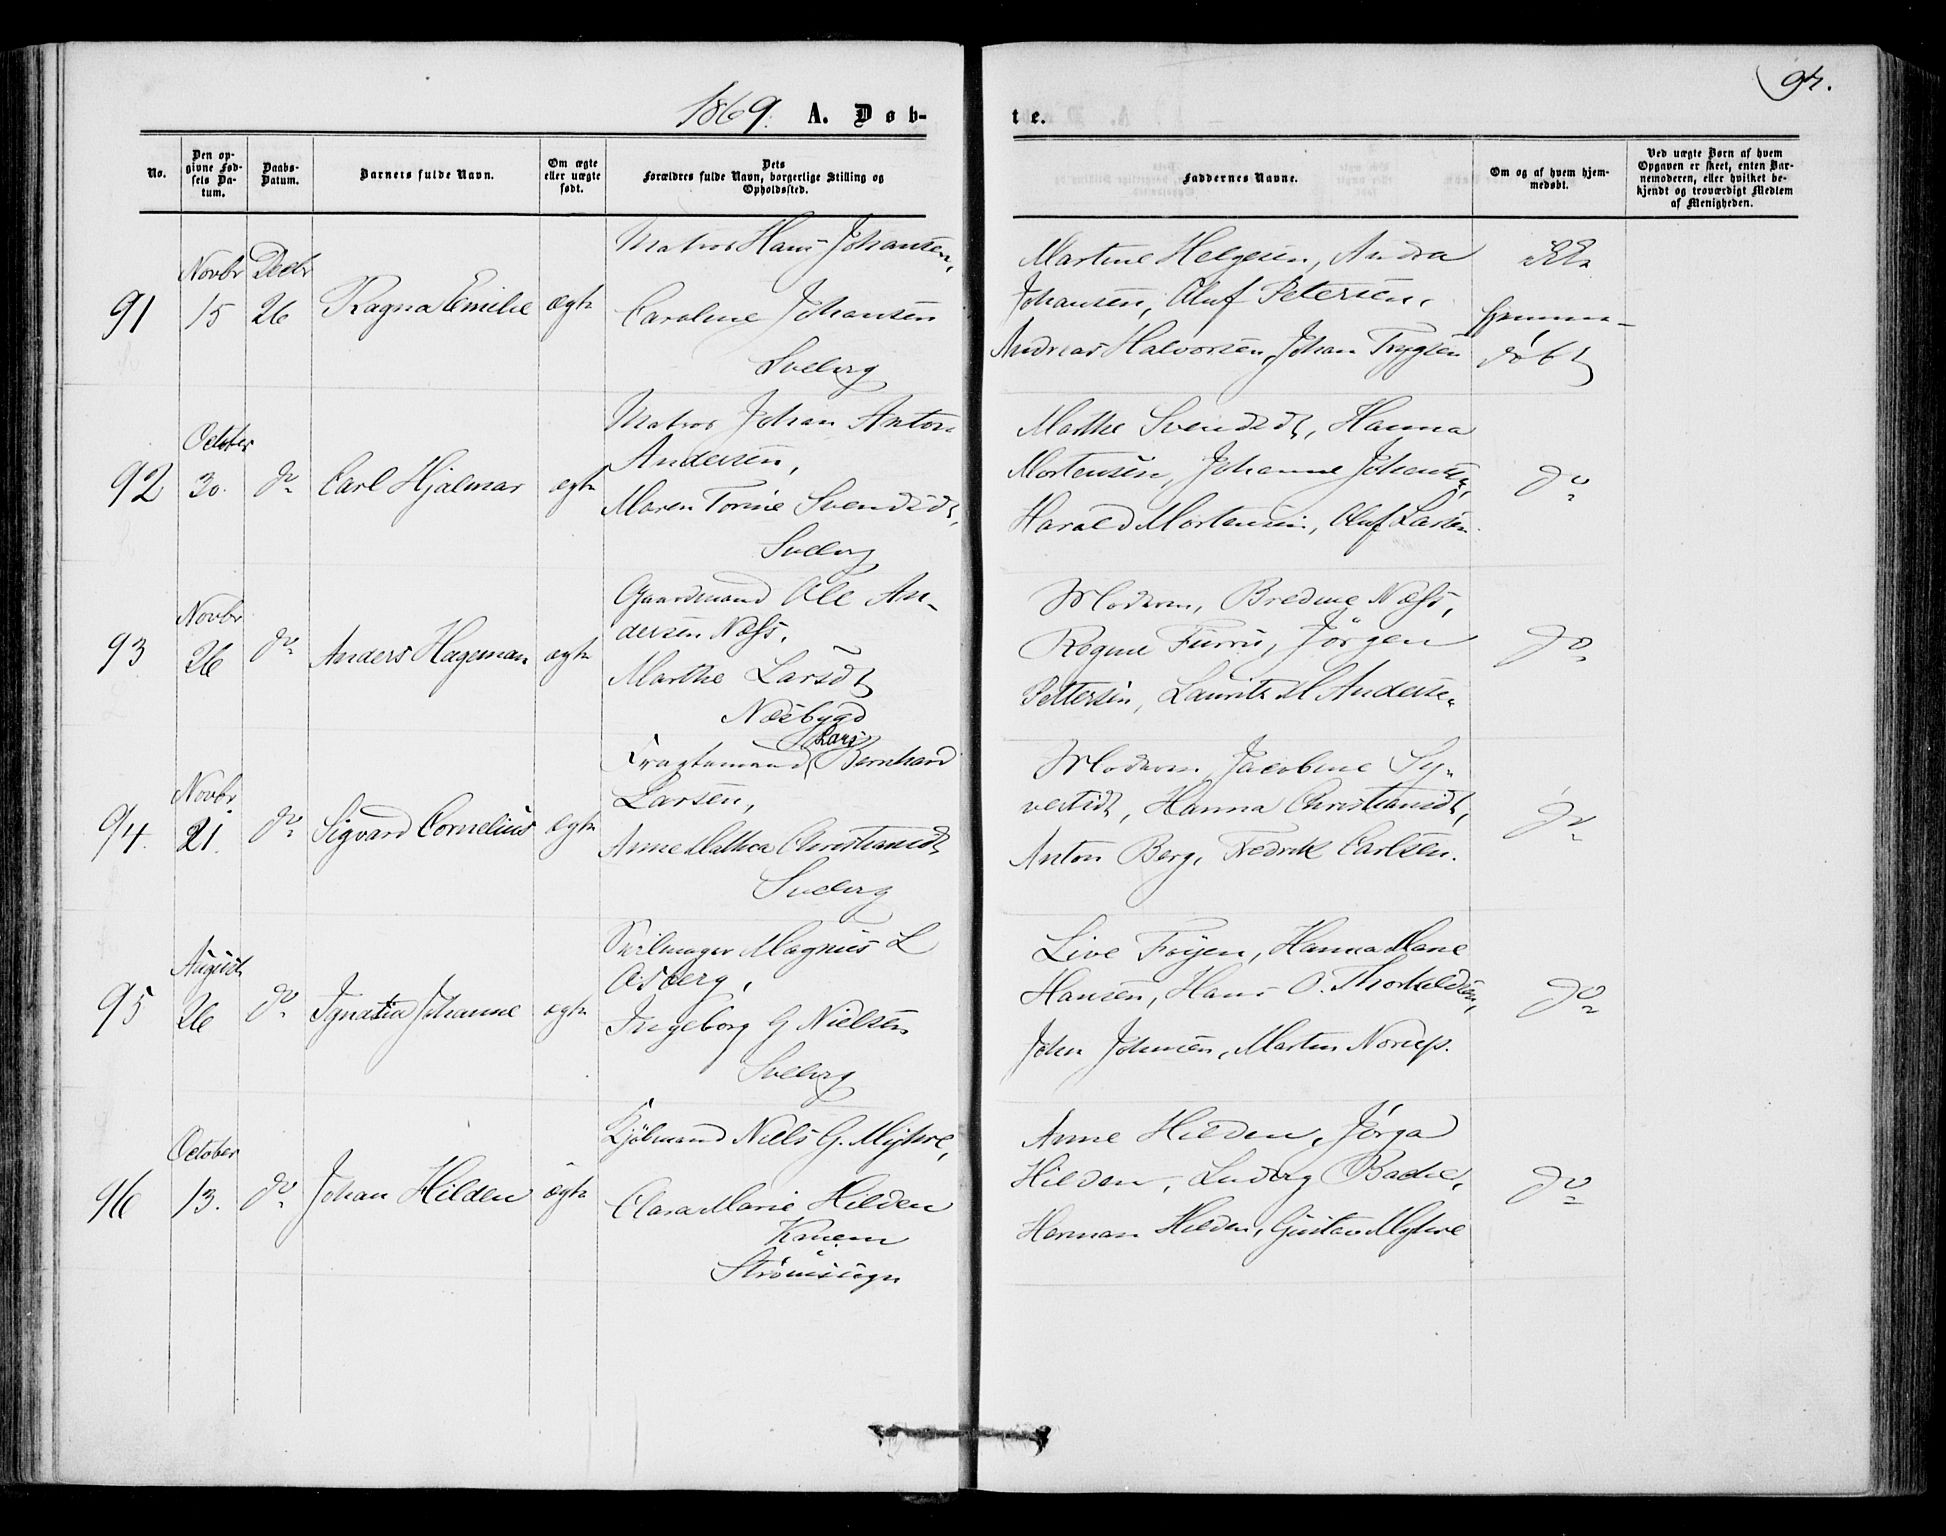 94.
1869. A. Døb-
te.
No.
Den op-
givne Fød-
sels Da-
tum.
Daabs-
Datum.
Barnets fulde Navn.
Om ægte
eller uægte
født.
Dets
Forældres fulde Navn, borgerlige Stilling og
Opholdssted.
Faddernes Navne.
Om og af hvem hjem-
medøbt.
Ved uægte Børn af hvem
Opgaven er skeet, enten Bar-
nemoderen, eller hvilket be-
kjendt og troværdigt Medlem
af Menigheden.
91
Novbr
15
Decbr
26
Ragna Emilie
ægte
Matros Hans Johansen,
Caroline Johansen
Svelvig
Martine Helgesen, Andrea
Johansen, Oluf Petersen,
Andreas Halvorsen, Johan Trygsen
Ikke
hjemme-
døbt
92
October
30.
do
Carl Hjalmar
ægte
Matros Johan Anton
Andersen,
Maren Torine Svendsdt,
Svelvig
Marthe Svendsdt, Hanna
Mortensen, Johanne Johansen,
Harald Mortensen, Oluf Larsen.
do
93
Novbr
26
do
Anders Hageman
ægte
Gaardmand Ole An-
dersen Næss,
Marthe Larsdt
Næsbygd
Moderen, Bredine Næss,
Ragne Furru, Jörgen
Pettersen, Lauritz M Andersen
do
94.
Novbr.
21.
do
Sigvard Cornelius
ægte
Lars
Fragtemand Bernhard
Larsen,
Anne Mathea Christiansdt
Svelvig
Moderen, Jacobine Sy-
vertsdt, Hanna Christiansdt,
Anton Berg, Fredrik Carlsen.
do
95
August
26
do
Ignatia Johanne
ægte
Seilmager Magnus L
Osberg,
Ingeborg G Nielsen
Svelvig
Live Föyen, Hanna Marie
Hansen, Hans O. Thorkeldsen,
John Johnsen, Martin Norup.
do
96
October
13.
do
Johan Hilden
ægte
Kjölmand Niels G. Myhre,
Clara Marie Hilden
Knem
Strømsogn
Anne Hilden, Jørga
Hilden, Ludvig Bache,
Herman Hilden, Gustav Myhre
do